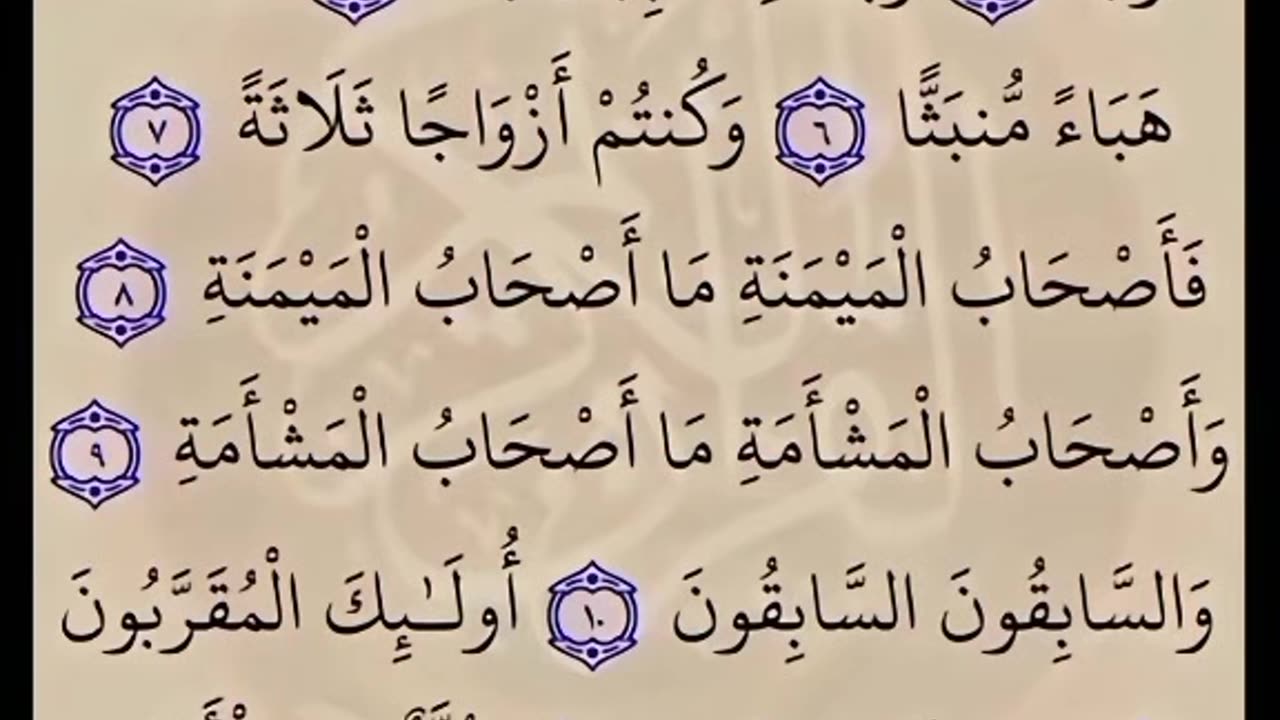 هَبَاءً مُّنبَثًّا ٦ وَكُنتُمْ أَزْوَاجًا ثَلَاثَةً ٧
فَأَصْحَابُ الْمَيْمَنَةِ مَا أَصْحَابُ الْمَيْمَنَةِ ٨
وَأَصْحَابُ الْمَشْأَمَةِ مَا أَصْحَابُ الْمَشْأَمَةِ ٩
وَالسَّابِقُونَ السَّابِقُونَ ١٠ أُولَـٰئِكَ الْمُقَرَّبُونَ